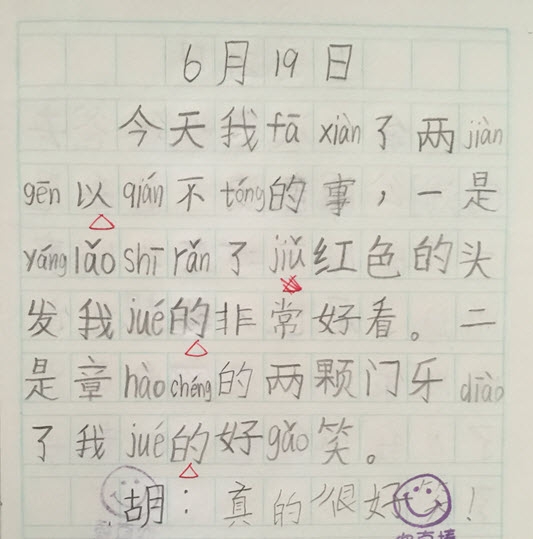 6月19日
今天我fā xiàn了两jiàn
gēn以qián不tóng的事，一是
yáng lǎo shī rǎn了jiǔ红色的头
发我jué的非常好看。二
是章hào chéng的两颗门牙diào
了我jué的好gǎo笑。
胡：真的很好！